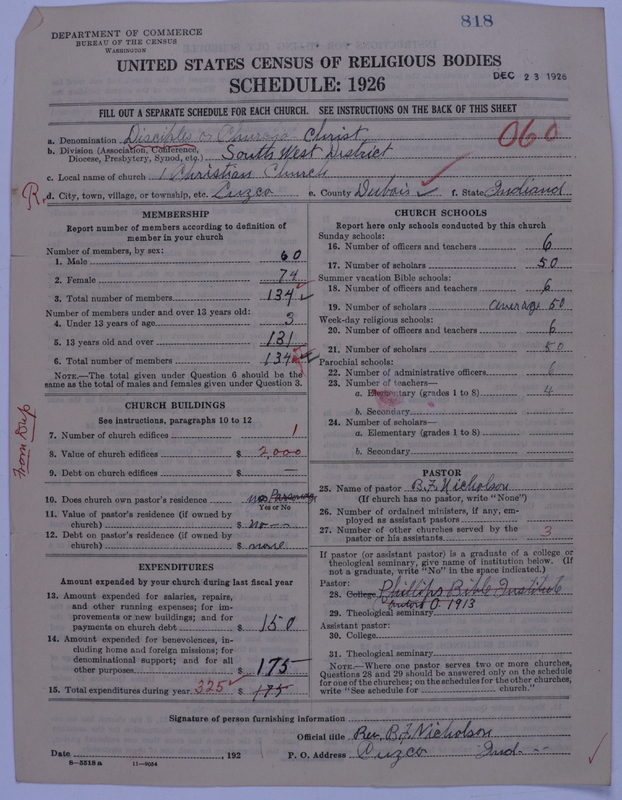 818
DEPARTMENT OF COMMERCE
BUREAU OF THE CENSUS
WASHINGTON
UNITED STATES CENSUS OF RELIGIOUS BODIES
DEC 23 1926
SCHEDULE: 1926
FILL OUT A SEPARATE SCHEDULE FOR EACH CHURCH. SEE INSTRUCTIONS ON THE BACK OF THIS SHEET
a. Denomination Disciples or Christ
060
b. Division (Association, Conference, Diocese, Presbytery, Synod, etc.) South West District
c. Local name of church Christian Church
R. d. City, town, village, or township, etc. Cuzco e. County Dubois f. State Indiana
MEMBERSHIP
Report number of members according to definition of member in your church
Number of members, by sex:
1. Male 60
2. Female 74
3. Total number of members 134
Number of members under and over 13 years old:
4. Under 13 years of age 3
5. 13 years old and over 131
6. Total number of members 134
NOTE.—The total given under Question 6 should be the same as the total of males and females given under Question 3.
CHURCH BUILDINGS
See instructions, paragraphs 10 to 12
From Dup
7. Number of church edifices 1
8. Value of church edifices $ 2,000
9. Debt on church edifices $ —
10. Does church own pastor's residence no Parsonage
Yes or No
11. Value of pastor's residence (if owned by church) $ no
12. Debt on pastor's residence (if owned by church) $ none
EXPENDITURES
Amount expended by your church during last fiscal year
13. Amount expended for salaries, repairs, and other running expenses; for improvements or new buildings; and for payments on church debt $ 150
14. Amount expended for benevolences, including home and foreign missions; for denominational support; and for all other purposes $ 175
15. Total expenditures during year 325 $ 175
CHURCH SCHOOLS
Report here only schools conducted by this church
Sunday schools:
16. Number of officers and teachers 6
17. Number of scholars 50
Summer vacation Bible schools:
18. Number of officers and teachers 6
19. Number of scholars average 50
Week-day religious schools:
20. Number of officers and teachers 6
21. Number of scholars 50
Parochial schools:
22. Number of administrative officers 6
23. Number of teachers—
a. Elementary (grades 1 to 8) 4
b. Secondary
24. Number of scholars—
a. Elementary (grades 1 to 8)
b. Secondary
PASTOR
25. Name of pastor B. F. Nicholson
(If church has no pastor, write "None")
26. Number of ordained ministers, if any, employed as assistant pastors
27. Number of other churches served by the pastor or his assistants 3
If pastor (or assistant pastor) is a graduate of a college or theological seminary, give name of institution below. (If not a graduate, write "No" in the space indicated.)
Pastor:
28. College Phillips Bible Institute
O. 1913
29. Theological seminary
Assistant pastor:
30. College
31. Theological seminary
NOTE.—Where one pastor serves two or more churches, Questions 28 and 29 should be answered only on the schedule for one of the churches; on the schedules for the other churches, write "See schedule for church."
Signature of person furnishing information
Official title Rev. B. F. Nicholson
Date , 192 P. O. Address Cuzco Ind
8-5518a 11-9084